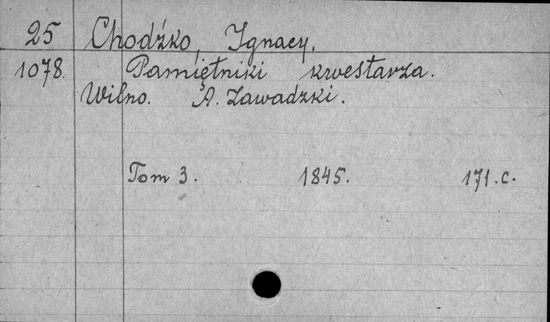 25 Chodźko, Ignacy.
1078 Pamiętniki kwestarza.
Wilno. A. Zawadzki.
Tom 3. 1845. 171.c.